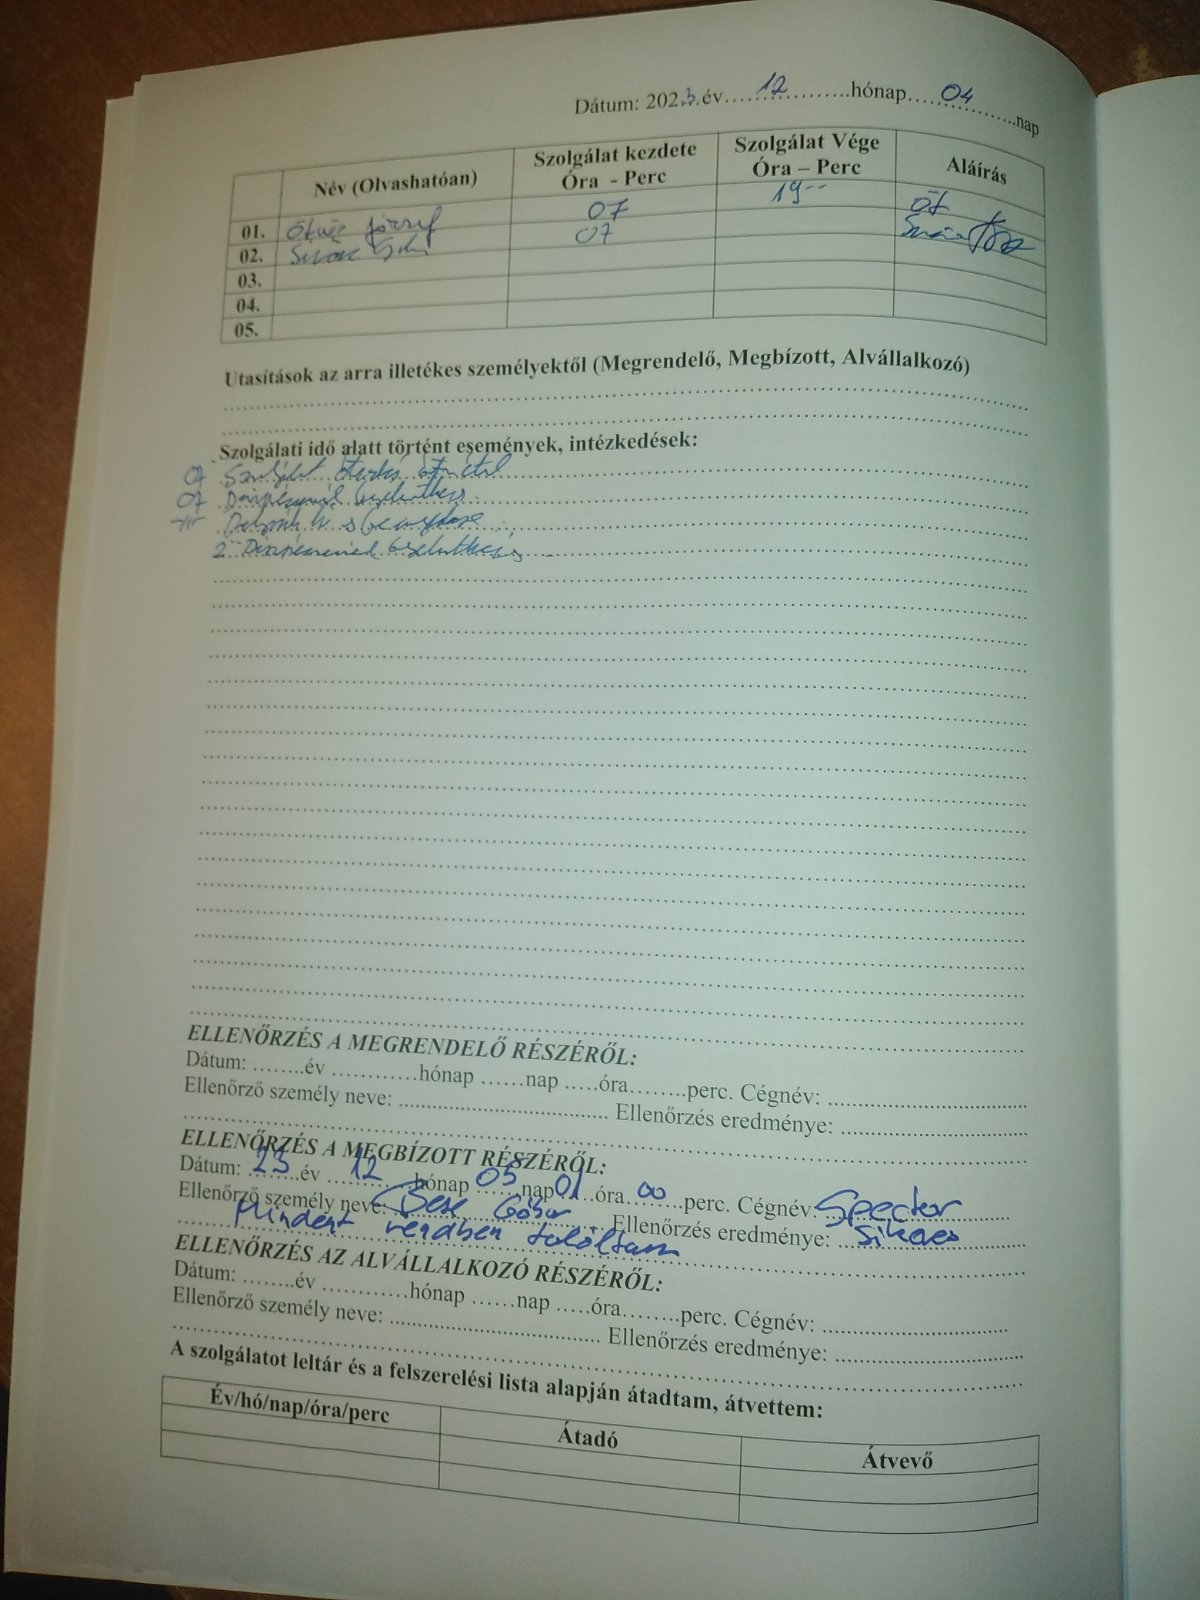 Dátum: 2023.év 12 hónap 04 nap
Név (Olvashatóan) Szolgálat kezdete Óra - Perc Szolgálat Vége Óra – Perc Aláírás
01. József 07 19--
02. 07
03.
04.
05.
Utasítások az arra illetékes személyektől (Megrendelő, Megbízott, Alvállalkozó)
Szolgálati idő alatt történt események, intézkedések:
07 Szolgálat
07
ELLENŐRZÉS A MEGRENDELŐ RÉSZÉRŐL:
Dátum: ........év ............hónap ......nap .....óra........perc. Cégnév: ................................
Ellenőrző személy neve: .................................. Ellenőrzés eredménye: ..............................
ELLENŐRZÉS A MEGBÍZOTT RÉSZÉRŐL:
Dátum: 23 év 12 hónap 05 nap 01 óra 00 perc. Cégnév: Spector
Ellenőrző személy neve: Bese Gábor Ellenőrzés eredménye: Sikeres
Mindent rendben találtam
ELLENŐRZÉS AZ ALVÁLLALKOZÓ RÉSZÉRŐL:
Dátum: ........év ............hónap ......nap .....óra........perc. Cégnév: ..............................
Ellenőrző személy neve: .................................. Ellenőrzés eredménye: ..............................
A szolgálatot leltár és a felszerelési lista alapján átadtam, átvettem:
Év/hó/nap/óra/perc Átadó Átvevő